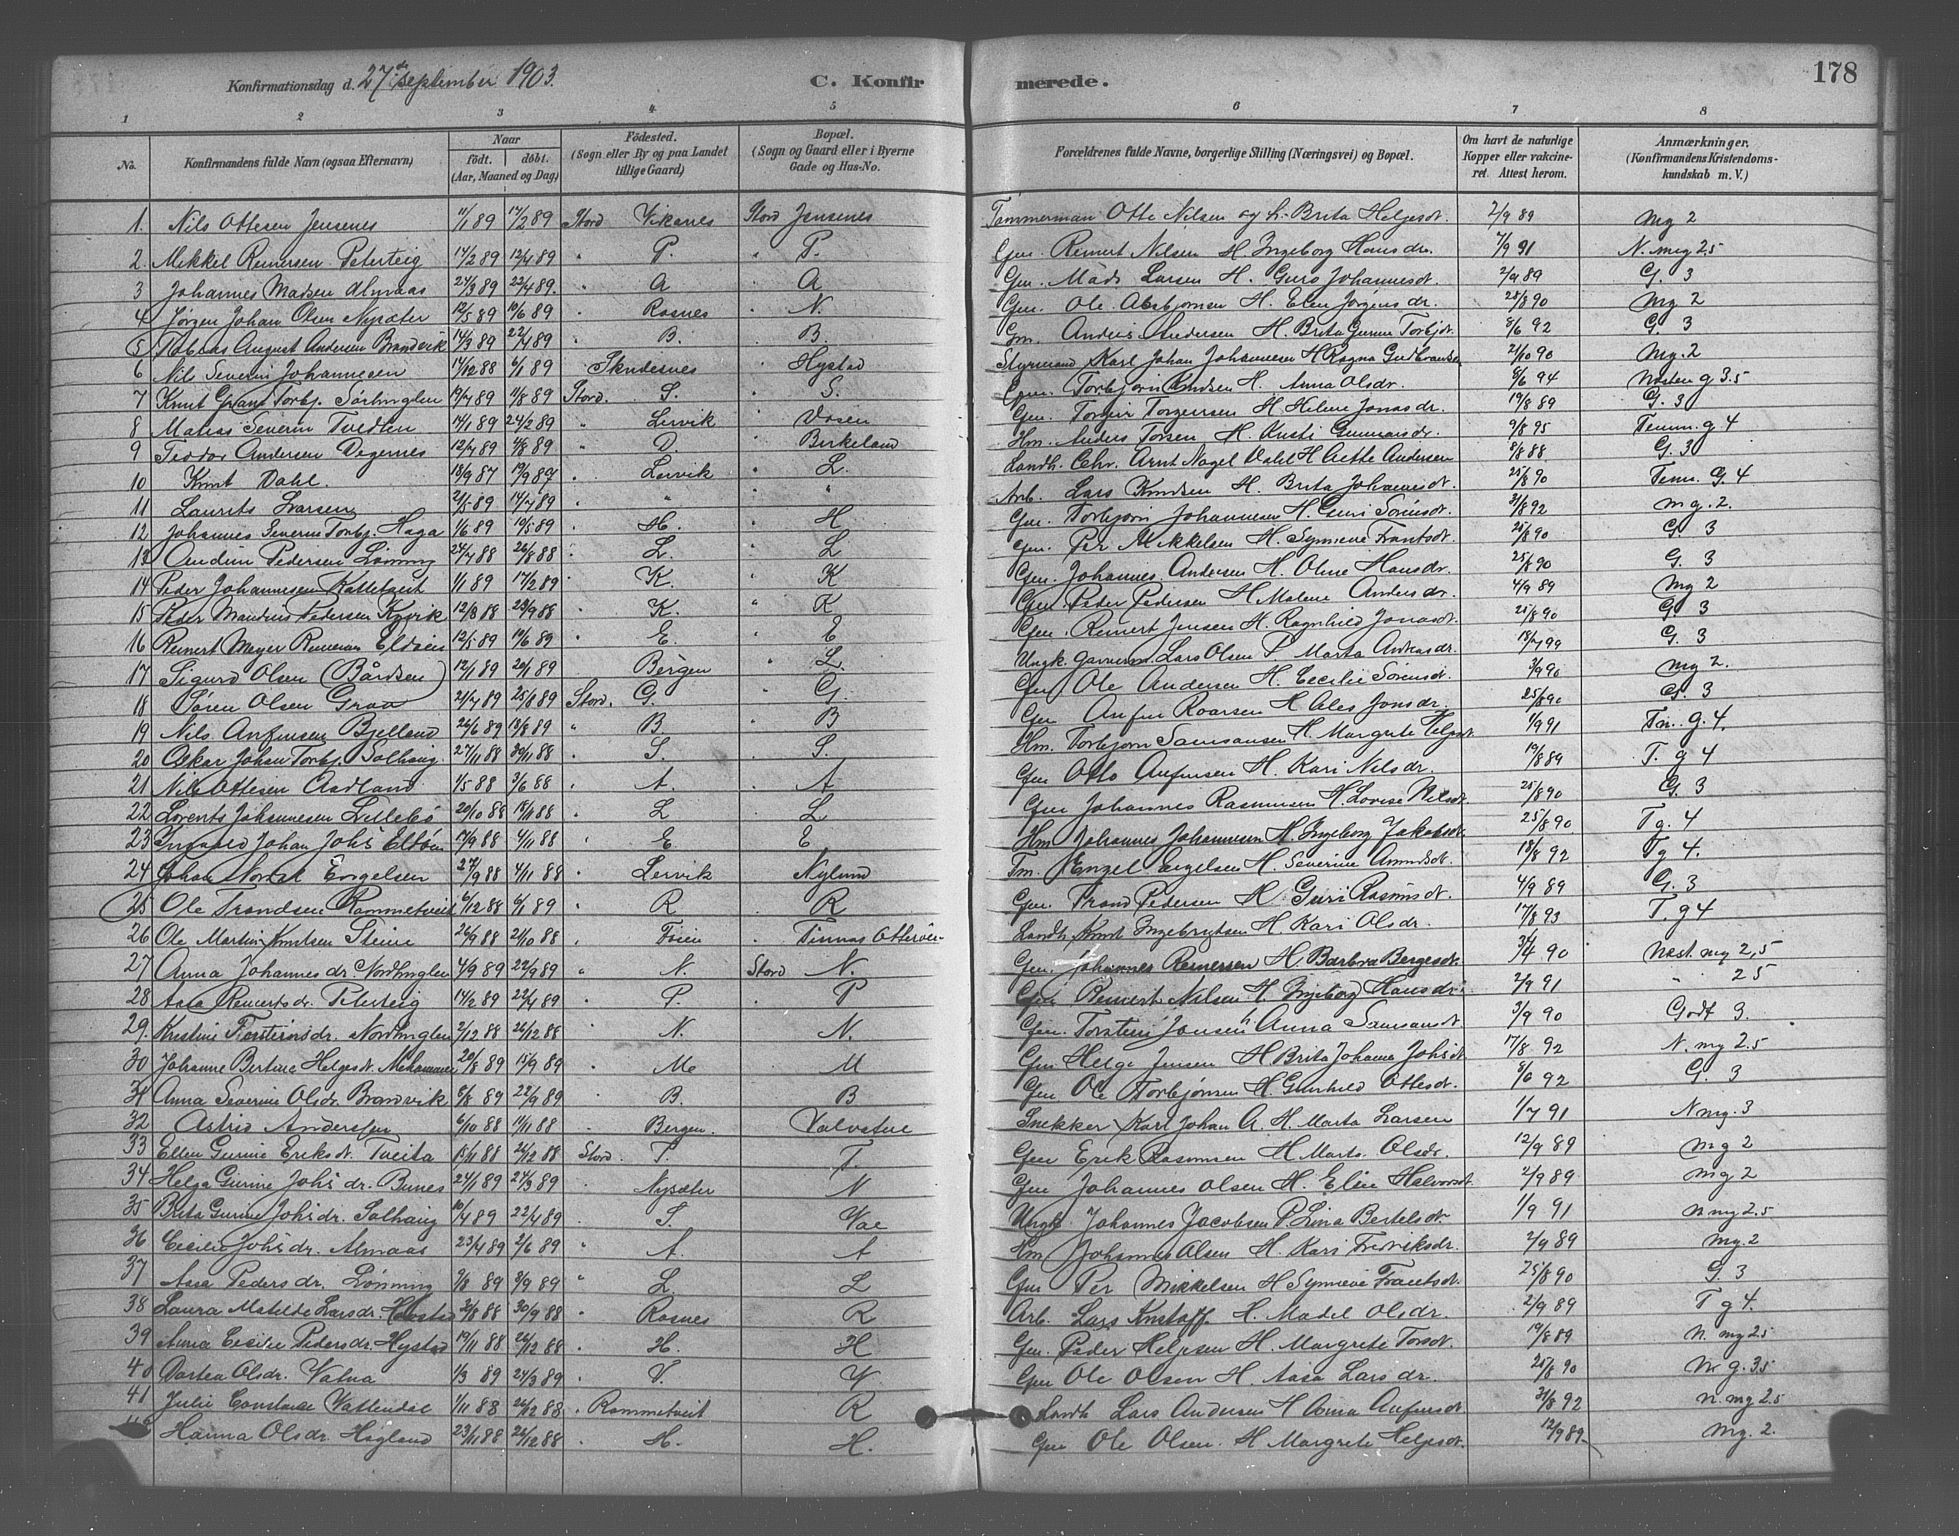 178
Konfirmationsdag d. 27de September 1903.
C. Konfirmerede.
1 2 3 4 5 6 7 8
No. Konfirmandens fulde Navn (ogsaa Efternavn) Naar født. døbt. (Aar, Maaned og Dag) Fødested. (Sogn eller By og paa Landet tillige Gaard) Bopæl. (Sogn og Gaard eller i Byerne Gade og Hus-No. Forældrenes fulde Navne, borgerlige Stilling (Næringsvei) og Bopæl. Om havt de naturlige Kopper eller vakcineret. Attest herom. Anmærkninger. (Konfirmandens Kristendomskundskab m. V.)
1. Nils Ottesen Jensenes 11/1 89 17/2 89 Stord Vikanes Stord Jensenes Tømmermand Otte Nilsen og h. Brita Helgesdt. 2/9 89 Mg 2
2. Mikkel Reinertsen Petarteig 14/2 89 12/4 89 " P. " P. Gm. Reinert Nilsen H. Ingeborg Hansdr. 7/9 91 N. meg 2.5
3 Johannes Madsen Almaas 24/3 89 22/4 89. " A " A Gm. Mads Larsen H. Guro Johannesdt. 2/9 89 G. 3
4 Jørgen Johan Olsen Nysæter 12/5 89 10/6 89 . Rosnes . N. Gm. Ole Absbjørnsen H. Elen Jørgensdr. 25/8 90 Mg 2
5 Tobias August Andersen Brandvik 14/3 89 22/4 89 . B. . B. Gm. Anders Andersen H. Brita Gurine Torbjdt. 8/6 92 G. 3
6 Nils Severin Johannesen 14/12 88 6/1 89 Skudesnes Hystad Styrmand Karl Johan Johannesen H. Ragna Gudbrandsen 2/10 90 Mg. 2
7 Knut Torbj. Sørhuglen 19/7 89 11/8 89 Stord. S. . S. Gm. Torbjørn Knudsen H. Anna Olsdr. 8/6 94 Næsten g 3.5
8 Matias Severin Tvedten 14/1 89 24/2 89 " Lervik " Vossen Gm. Torger Torgersen H. Helene Jonasdr. 19/8 89 G. 3
9 Teodor Andersen Degernes 12/7 89 4/8 89 . D. . Birkeland Hm. Anders Torsen H. Kristi Gunnarsdr. 9/8 95 Temm. g 4
10 Knut Dahl. 13/9 87 19/9 87 . Lervik . L. Landh. Chr. Arnt Nagel Dahl H Aette Andersen 8/8 88 G. 3
11 Laurits Larsen 2/5 89 14/7 89 . " . " Arb. Lars Knudsen H. Brita Johannesdt. 25/8 90 Tem. G. 4
12 Johannes Severin Torbj. Haga 1/6 89 19/5 89 . H. . H Gm. Torbjørn Johannesen H. Guri Sørensdt. 31/8 92 mg. 2.
13 Audun Pedersen Lønning 24/7 88 26/8 88 . L. . L Gm. Per Mikkelsen H. Synneve Frantsdt. 25/8 90 G. 3
14 Peder Johannesen Kattetveit 1/1 89 17/2 89 . K. . K Gm. Johannes Andersen H. Oline Hansdr. 25/8 90 G. 3
15 Peder Mandrus Pedersen Kyvik 12/8 88 23/9 88 . K. " K Gm. Peder Pedersen H Malene Andersdr. 4/9 89 Mg 2
16 Reinert Meyer Reinertsen Eldøen 12/5 89 10/6 89 . E. " E Gm. Reinert Jensen H. Ragnhild Jonasdt. 25/8 90 G. 3
17 Sigurd Olsen (Bårdsen) 12/1 89 20/1 89 Bergen " L. Ungk. Garverm. Lars Olsen P. Marta Andreasdr. 18/7 99 G. 3
18 Søren Olsen Graa 21/7 89 25/8 89 Stord. G. " G. Gm Ole Andersen H. Cecilie Sørensdt. 3/9 90 mg 2.
19 Nils Anfinsen Bjelland 26/6 89 18/8 89 " B " B Gm Anfin Roarsen H Ales Jonsdr. 25/8 90 G. 3
20 Oskar Johan Torbj. Solhaug 27/11 88 30/11 88 . S. . S. Hm. Torbjørn Samsonsen H. Margrete Helgsdt. 1/9 91 Tm. g. 4.
21 Nils Ottesen Aadland 1/5 88 3/6 88 . A. . A Gm Otto Anfinsen H. Kari Nilsdr. 19/8 89 T. g 4
22 Lorents Johannesen Lillebø 20/10 88 18/11 88 . L . L Gm Johannes Rasmusen H. Lovise Nilsdt. 25/8 90 G. 3
23 Ingvald Johan Johs Eldøen 17/9 88 4/11 88 . E E Hm Johannes Johannesen H. Ingeborg Jakobsdt. 25/8 90 T g. 4
24 Johan Norval Engelsen 27/9 88 4/11 88 . Lervik Nylund Tm. Engel Engelsen H. Severine Amundsdt. 18/8 92 Tg 4.
25 Ole Trondsen Rommetveit 6/12 88 6/1 89 . R . R Gm. Trond Pedersen H Guri Rasmusdt. 4/9 89 G. 3
26 Ole Martin Knutsen Steine 26/9 88 21/10 88 . Føien . Tinnas Ottervei Landh. Knut Ingebrigtsen H. Kari Olsdr. 17/8 93 T. g 4
27 Anna Johannesdr. Nordhuglen 4/9 89 22/9 89 " N. Stord N. Gm. Johannes Reinersen H. Barbra Bergesdt. 3/4 90 Næst. mg 2,5
28 Aasa Reinertsdr. Petarteig 14/2 89 22/4 89 . P. . P Gm Reinert Nilsen H. Ingeborg Hansdr. 2/9 91 " 2 5
29. Kristine Torsteinsdr. Nordhuglen 2/12 88 26/12 88 . N. . N. Gm. Torstein Jonsen h Anna Samsonsdt 3/9 90 Godt 3.
30 Johanne Bertina Helgesdt. Mehammer 20/8 89 15/9 89 . Me . M Gm Helge Jensen H Brita Johanna Johsdt 17/8 92 N. mg 2.5
31 Anna Severine Olsdr. Brandvik 8/8 89 22/9 89 . B. B Gm Ole Torbjørnsen H. Gunhild Ottesdt. 8/6 92 G. 3
32 Astrid Anderssen 6/10 88 11/11 88 . Bergen. Valvatne Snekker Karl Johan A. H. Marta Larsen 1/7 91 N mg. 3
33 Ellen Gurine Eriksdt. Tveita 15/11 88 26/12 88 Stord. T. T. Gm Erik Rasmusen H. Marta Olsdr. 12/9 89 Mg 2
34 Helga Gurine Johsdr. Bunes 24/1 89 24/3 89 Nysæter N Gm Johannes Olsen H. Eline Halvorsdt. 2/9 89 Mg 2
35 Brita Gurine Johsdr. Solhaug 10/4 89 22/4 89 . S. Vae Ungk. Johannes Jacobsen P. Lina Bertelsdt. 1/9 91 n mg 2.5
36 Cecilie Johsdr. Almaas 23/4 89 2/6 89 " A. A Hm Johannes Olsen H. Kari Fredriksdr. 2/9 89 mg. 2
37 Aasa Pedersdr. Lønning 3/8 89 8/9 89 " L. L Gm Per Mikkelsen H Synneve Frantsdt. 25/8 90 G. 3
38 Laura Matilde Larsdr. 31/8 88 30/9 88 . Rosnes R Arb. Lars Kristoff. H. Madel Olsdr. 2/9 89 T g 4.
39 Anna Cecilie Pedersdr. Hystad 19/11 88 26/12 88 . H. H Gm. Peder Helgesen H. Margrete Torsdt. 19/8 89 n. mg 2.5
40 Dortea Olsdr. Vatna 1/3 89 24/3 89 . V. V Gm Ole Olsen H. Aasa Larsdr. 25/8 90 N g. 3.5
41 Julie Constance Vattendal 1/11 88 26/12 88 . Rommetveit R Landh Lars Andersen H Anna Anfinsdt. 31/8 92 n. mg 2.5
42 Hanna Olsdr. Hagland 23/11 88 26/12 88 . H. H. Gm Ole Olsen. H. Margrete Helgesdt. 12/9 89 Mg. 2.